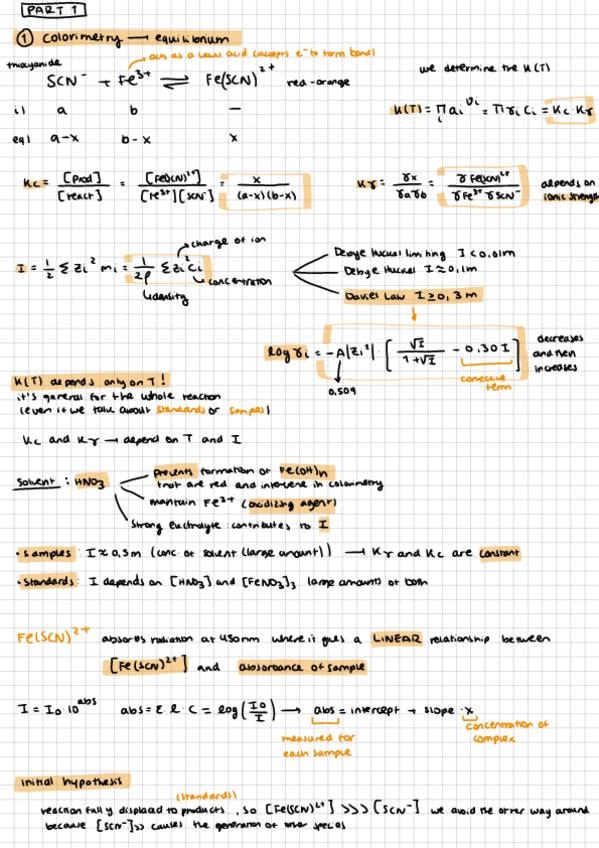 PART 1
① Colorimetry → equilibrium
acts as a Lewis acid (accepts e⁻ to form bond)
thiocyanide
SCN⁻ + Fe³⁺ ⇌ Fe(SCN)²⁺ red-orange
we determine the K(T)
i) a b —
K(T) = Π ai^νi = Πγi Ci = Kc·Kγ
eq) a-x b-x x
Kc = [Prod]/[react] = [Fe(SCN)²⁺]/[Fe³⁺][SCN⁻] = x/(a-x)(b-x)
Kγ = γx/γaγb = γFe(SCN)²⁺/γFe³⁺ γSCN⁻ depends on ionic strength
I = 1/2 Σzi² mi = 1/2ρ Σzi² Ci
charge of ion
concentration
density
Debye Huckel limiting I < 0,01m
Debye Huckel I ≈ 0,1m
Davies Law I ≥ 0,3m
log γi = -A|zi²| · [√I/1+√I - 0,30 I]
decreases and then increases
0,509
corrective term
K(T) depends only on T!
it's general for the whole reaction
(even if we talk about standards or samples)
Kc and Kγ → depend on T and I
Solvent: HNO3
prevents formation of Fe(OH)n
that are red and intervene in colorimetry
mantain Fe³⁺ (oxidizing agent)
strong electrolyte: contributes to I
• samples: I ≈ 0,5m (conc of solvent (large amount)) → Kγ and Kc are constant
• Standards: I depends on [HNO3] and [FeNO3]3 large amounts of both
Fe(SCN)²⁺ absorbs radiation at 450nm where it gives a LINEAR relationship between
[Fe(SCN)²⁺] and absorbance of sample
I = I0·10^abs abs = ε·l·C = log(I0/I) → abs = intercept + slope · x
measured for each sample
concentration of complex
initial hypothesis
(standards)
reaction fully displaced to products, so [Fe(SCN)²⁺] >>> [SCN⁻] we avoid the other way around
because [SCN⁻]>> causes the generation of other species